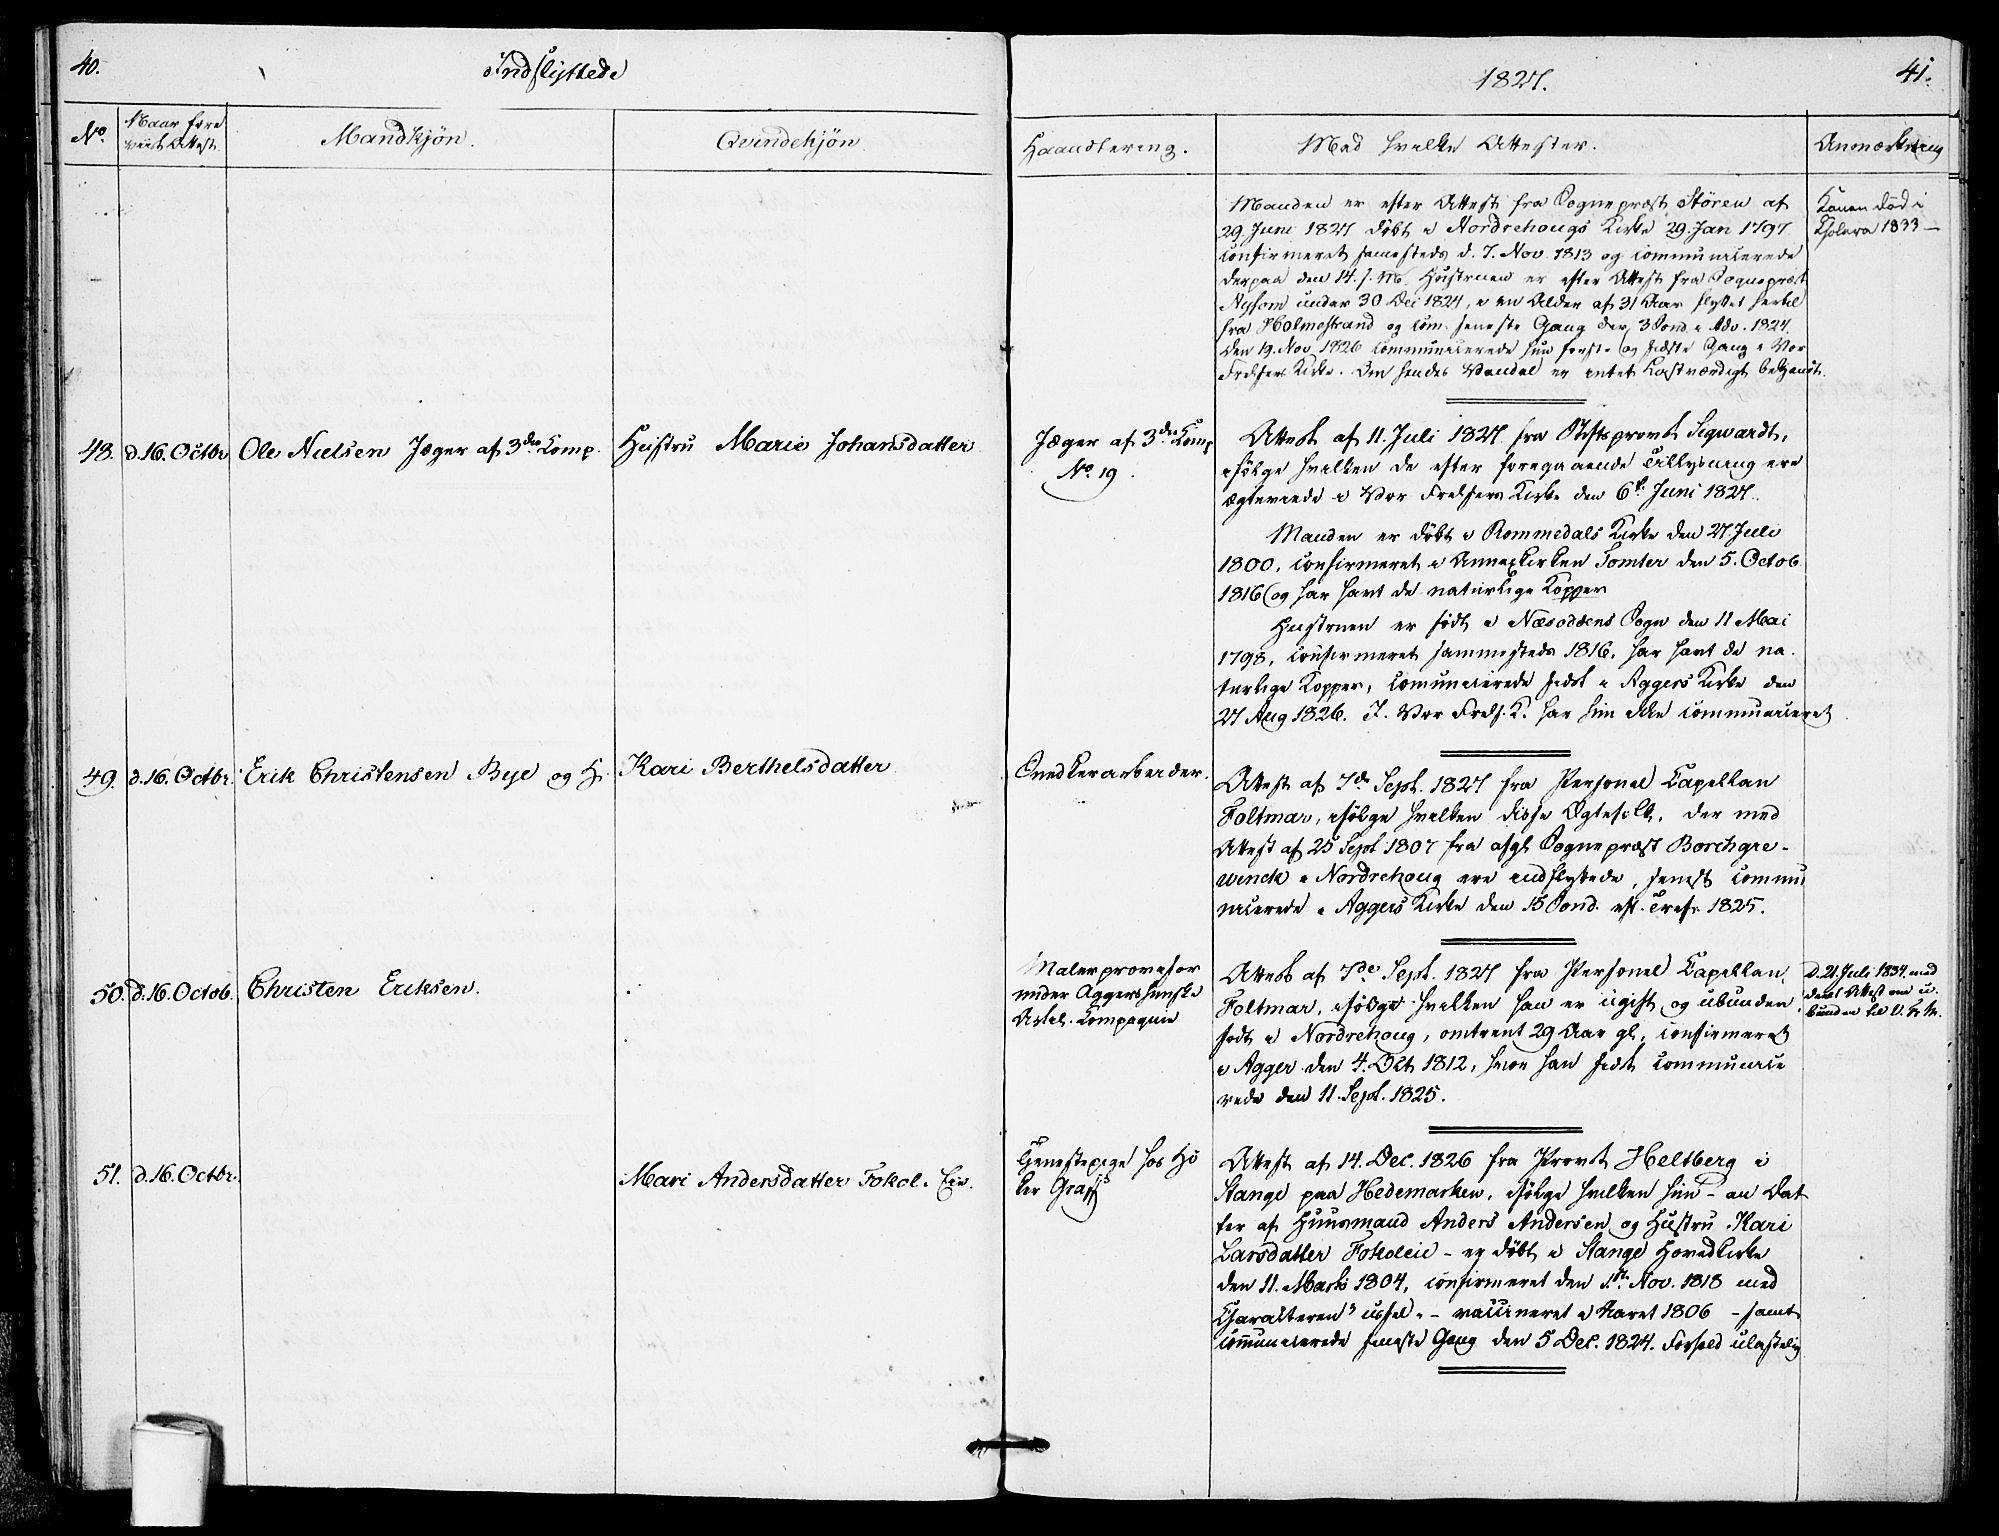 40.
Indflyttede
No
Naar fore
viist Attest
Mandkjön.
Qvindekjön.
48.
d. 16. Octbr
Ole Nielsen Jæger af 3die Comp.
Hustru Marie Johansdatter
49.
d. 16. Octbr.
Erik Christensen Bye og H.
Kari Berthelsdatter
50.
d. 16. Octob.
Christen Eriksen.
51.
d. 16. Octbr.
Mari Andersdatter Fokol. Eie.
1827.
41.
Haandtering.
Med hvilke Attester.
Anmærkning
Manden er efter Attest fra Sognepræst Stören af
29. Juni 1827 döbt i Nordrehougs Kirke 29. Jan 1797
confirmeret samesteds d. 7. Nov 1813 og communicerede
derpaa den 14. s. M. Hustruen er efter Attest fra Sognepræst
Nysom under 30 Dec 1824, i en Alder af 31 Aar flyttet hertil
fra Holmestrand og com. seneste Gang der 3 Sönd. i Adv. 1824.
den 19. Nov 1826 communicerede hun först og sidste Gang i Vor
Frelsers Kirke. Om hendes Vandel er intet Lastværdigt bekjendt.
Konen död i
Cholera 1833 —
Jæger af 3die Comp
No 19.
Attest af 11. Juli 1827 fra Stiftsprovst Sigwardt,
ifölge hvilken de efter foregaaende Tillysning ere
ægteviede i Vor Frelsers Kirke den 6te Juni 1827.
Manden er döbt i Rommedals Kirke den 27 Juli
1800, confirmeret i Annexkirken Tomter den 5. Octob
1816 og har havt de naturlige Kopper
Hustruen er födt i Næsoddens Sogn den 11 Mai
1798, confirmeret sammesteds 1816, har havt de na-
turlige Kopper, communicerede sidst i Aggers Kirke den
27 Aug 1826. I Vor Frels. K. har hun ikke communiceret
Snedkerarbeider.
Attest af 7de Sept. 1827 fra Personel Capellan
Foltmar, ifölge hvilken disse Ægtefolk, der med
Attest af 25 Sept 1807 fra afgl Sognepræst Borchgre-
winck i Nordrehoug ere indflyttede, senest commu
nicerede i Aggers Kirke den 15 Sönd. eft. Tref. 1825.
under Aggershuuske
Artil. Compagnie
Attest af 7de Sept. 1827 fra Personel Capellan
Foltmar, ifölge hvilken han er ugift og ubunden
födt i Nordrehoug, omtrent 29 Aar gl., confirmeret
i Agger den 4. Oct 1812, hvor han sidst communice
rede den 11. Sept. 1825.
d. 21. Juli 1834 med
denne Attest om u-
bunden til V. Fr. K.
Tjenestepige hos Hö
ker Graff
Attest af 14. Dec. 1826 fra Provst Heltberg i
Stange paa Hedemarken, ifölge hvilken hun - en Dat
ter af Huusmand Anders Andersen og Hustru Kari
Larsdatter Fokoleie - er döbt i Stange Hovedkirke
den 11. Marts 1804, confirmeret den 1ste Nov. 1818 med
Charakteren "ussel" - vaccineret i Aaret 1806 - samt
communicerede seneste Gang den 5 Dec. 1824. Forhold ulastelig